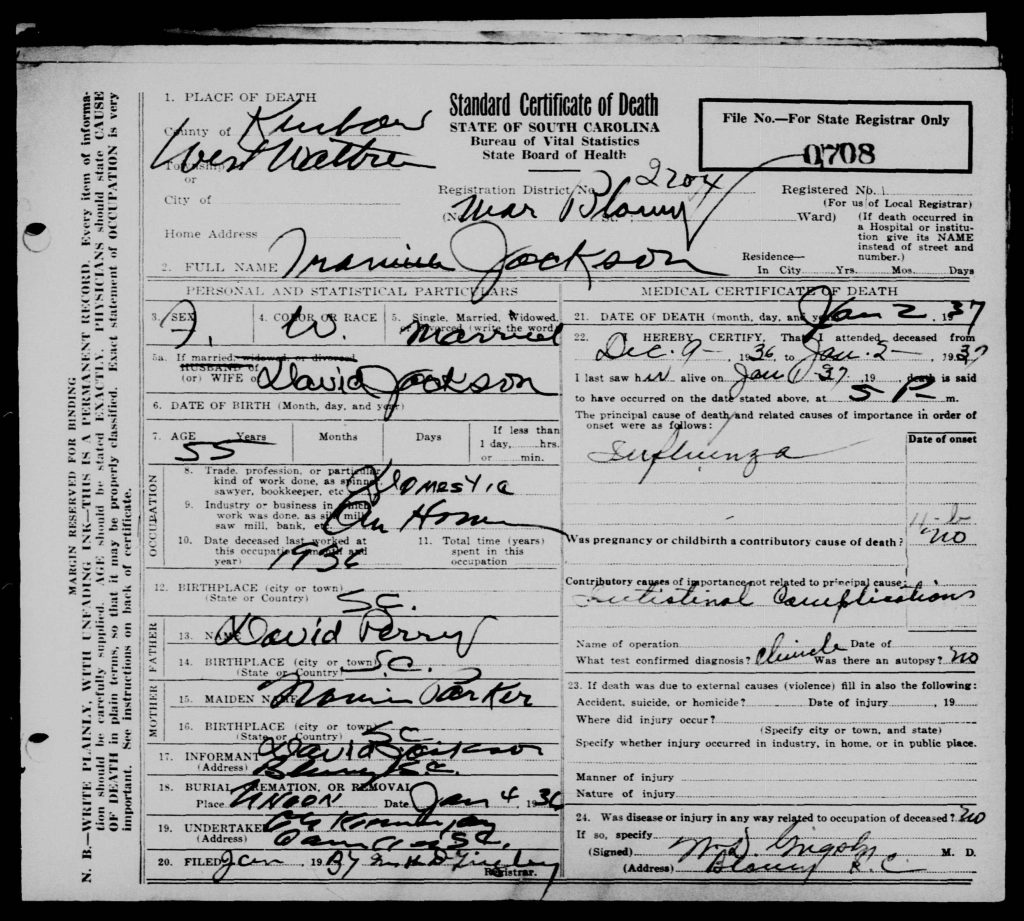 N. B.—WRITE PLAINLY, WITH UNFADING INK—THIS IS A PERMANENT RECORD. Every item of informa-
tion should be carefully supplied. AGE should be stated EXACTLY. PHYSICIANS should state CAUSE
OF DEATH in plain terms, so that it may be properly classified. Exact statement of OCCUPATION is very
important. See instructions on back of certificate.
MARGIN RESERVED FOR BINDING
1. PLACE OF DEATH
County of
Township West
or
City of
Home Address
Standard Certificate of Death
STATE OF SOUTH CAROLINA
Bureau of Vital Statistics
State Board of Health
File No.—For State Registrar Only
0708
Registration District No. 2704
(No. near Blaney St.
Ward)
Registered No.
(For use of Local Registrar)
(If death occurred in
a Hospital or institu-
tion give its NAME
instead of street and
number.)
2. FULL NAME Jackson
Residence—
In City Yrs. Mos. Days
PERSONAL AND STATISTICAL PARTICULARS
3. SEX F.
4. COLOR OR RACE W.
5. Single, Married, Widowed,
or Divorced (write the word) Married
5a. If married, widowed, or divorced
HUSBAND of
(or) WIFE of David Jackson
6. DATE OF BIRTH (Month, day, and year)
7. AGE Years Months Days
55
If less than
1 day, hrs.
or min.
OCCUPATION
8. Trade, profession, or particular
kind of work done, as spinner,
sawyer, bookkeeper, etc. Domestic
9. Industry or business in which
work was done, as silk mill,
saw mill, bank, etc. Home
10. Date deceased last worked at
this occupation (month and
year) 1936
11. Total time (years)
spent in this
occupation
12. BIRTHPLACE (city or town)
(State or Country) S.C.
FATHER
13. NAME David Perry
14. BIRTHPLACE (city or town)
(State or Country) S.C.
MOTHER
15. MAIDEN NAME Parker
16. BIRTHPLACE (city or town)
(State or Country) S.C.
17. INFORMANT David Jackson
(Address) Blaney S.C.
18. BURIAL, CREMATION, OR REMOVAL
Place Union Date Jan 4 1936
19. UNDERTAKER
(Address) S.C.
20. FILED Jan 1937
Registrar.
MEDICAL CERTIFICATE OF DEATH
21. DATE OF DEATH (month, day, and year) Jan 2, 1937
22. I HEREBY CERTIFY, That I attended deceased from
Dec. 9 — 1936 to Jan. 2 — 1937
I last saw her alive on Jan 1 37 19 death is said
to have occurred on the date stated above, at 5 P m.
The principal cause of death and related causes of importance in order of
onset were as follows:
Date of onset
Influenza
Was pregnancy or childbirth a contributory cause of death? no
Contributory causes of importance not related to principal cause:
Intistinal Complications
Name of operation Date of
What test confirmed diagnosis? Was there an autopsy? no
23. If death was due to external causes (violence) fill in also the following:
Accident, suicide, or homicide? Date of injury , 19
Where did injury occur?
(Specify city or town, and state)
Specify whether injury occurred in industry, in home, or in public place.
Manner of injury
Nature of injury
24. Was disease or injury in any way related to occupation of deceased? no
If so, specify
(Signed) W.D. Grigsby M. D.
(Address) Blaney S.C.